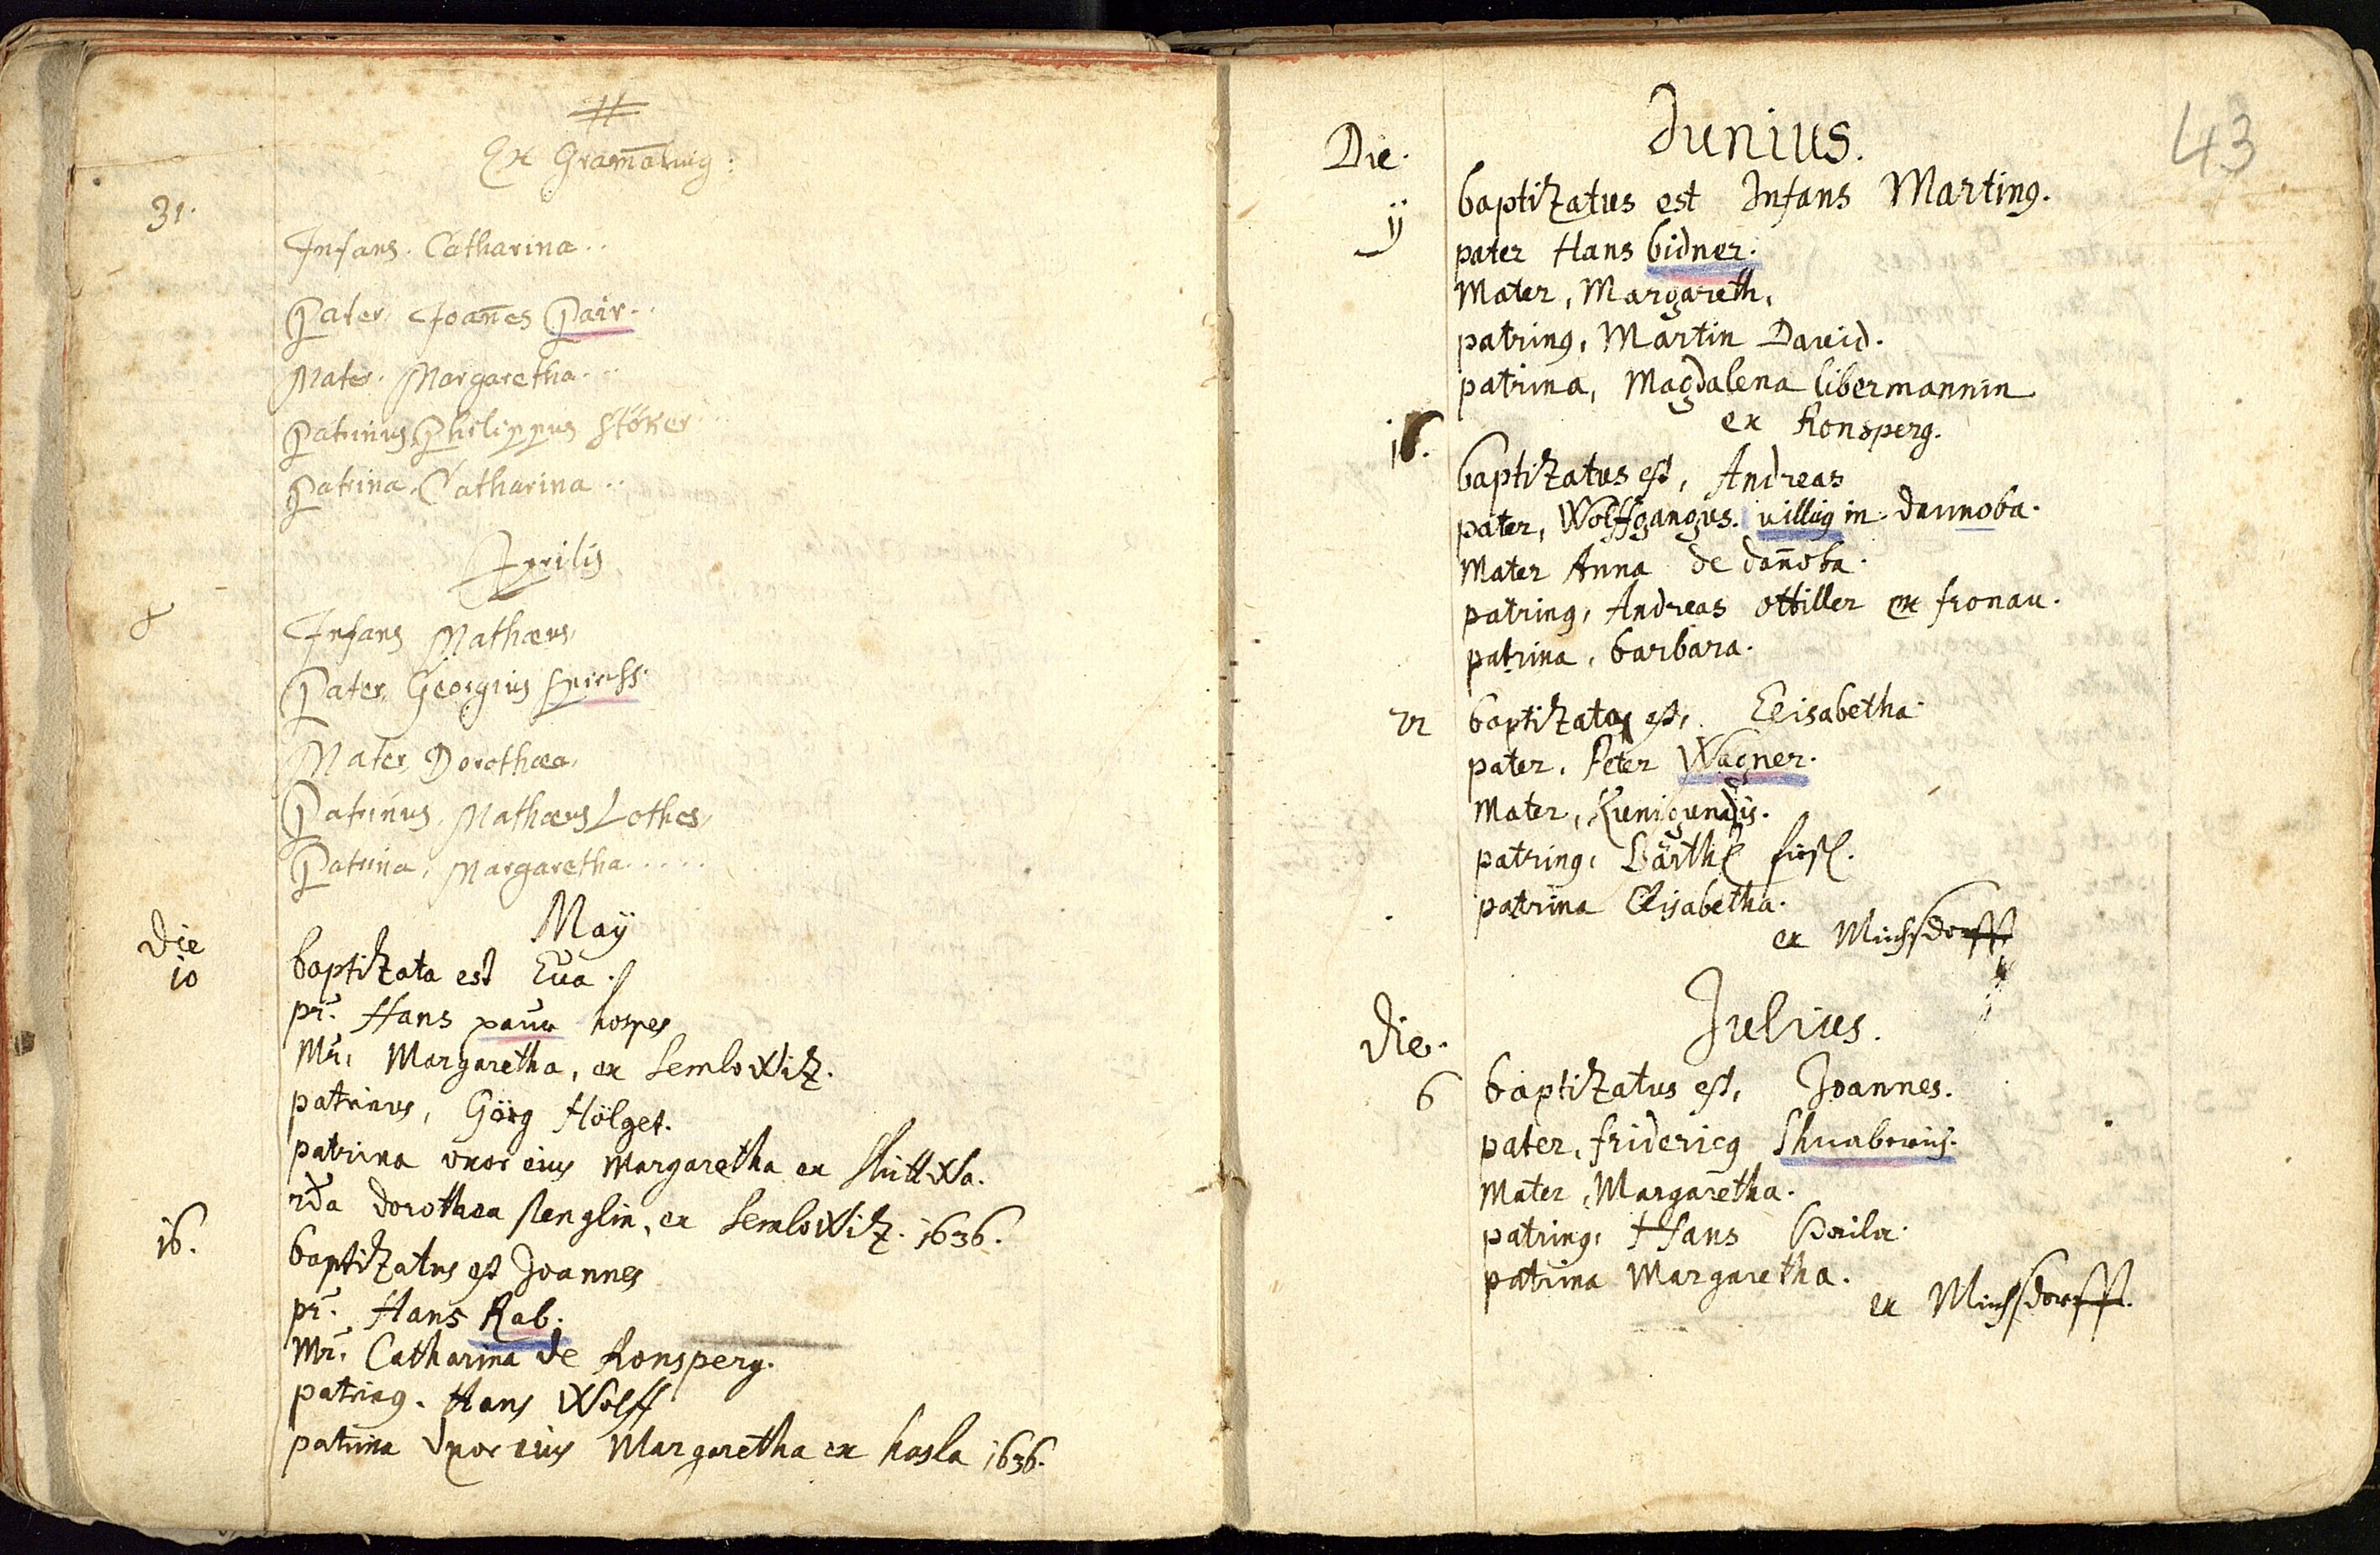 Ex Gramating:
31.
Infans. Catharina..
Pater. Joañes Pair..
Mater. Margaretha...
Patrinus Philippus Stöker
Patrina. Catharina..
Aprilis
8
Infans Mathæus,
Pater, Georgius Spiess.
Mater, Dorothæa,
Patrinus, Mathæus Lothes,
Patrina, Margaretha.....
May
Die
10
baptizata est Eua.
pr. Hans paur hospes
Mr. Margaretha, ex Semlowitz.
patrinus, Görg Hölget.
patrina uxor eius Margaretha ex
2da dorothea senglin, ex Semlowitz. 1636.
16.
baptizatus est Joannes
pr. Hans Rab.
Mr. Catharina de Ronsperg.
patrin9. Hans Wolff
patrina Uxor eius Margaretha ex hasla 1636.
43
Junius.
Die.
ij
baptizatus est Infans Martin9.
pater Hans bidner.
Mater, Margareth,
patrin9, Martin Dauid.
patrina, Magdalena libermannin
ex Ronsperg.
baptizatus est, Andreas
pater, Wolffgangus. uillig in dannoba.
Mater Anna de dañoba.
patrin9, Andreas ottiller ex fronau.
patrina, barbara.
22
baptizata est, Elisabetha.
pater, Peter Wagner.
Mater, Kunigundis.
patrin9, Bärthl
patrina Elisabetha.
ex Michsdorfft
Julius.
Die.
6
baptizatus est, Joannes.
pater, frideric9
Mater, Margaretha.
patrin9, Hans
patrina Margaretha.
ex Michsdorfft.